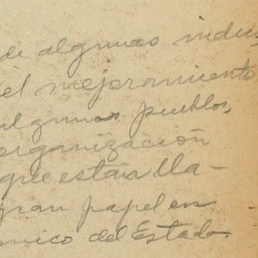 de algunas indus
el mejoramiento
algunos pueblos,
organización
que estáa lla-
gran papel en
ómico del Estado